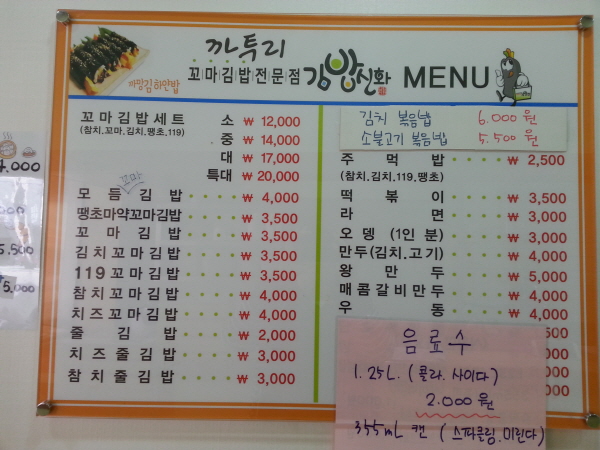 까투리
까망김 하얀밥
꼬마김밥전문점 김밥신화 MENU
꼬마김밥세트 소 ₩ 12,000
(참치.꼬마.김치.땡초.119) 중 ₩ 14,000
대 ₩ 17,000
특대 ₩ 20,000
꼬마
모듬김밥 ₩ 4,000
땡초마약꼬마김밥 ₩ 3,500
꼬마김밥 ₩ 3,500
김치꼬마김밥 ₩ 3,500
119꼬마김밥 ₩ 3,500
참치꼬마김밥 ₩ 4,000
치즈꼬마김밥 ₩ 4,000
줄김밥 ₩ 2,000
치즈줄김밥 ₩ 3,000
참치줄김밥 ₩ 3,000
김치 볶음밥 6.000원
소불고기 볶음밥 5.500원
주먹밥 ₩ 2,500
(참치.김치.119.땡초)
떡볶이 ₩ 3,500
라면 ₩ 3,000
오뎅 (1인분) ₩ 3,000
만두(김치.고기) ₩ 4,000
왕만두 ₩ 5,000
매콤갈비만두 ₩ 4,000
우동 ₩ 4,000
500
000
000
음료수
1.25L. (콜라. 사이다)
2.000원
355mL 캔 (스파클링.미린다)
4.000
000
5.500
5,000